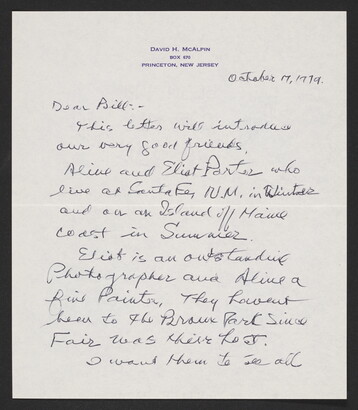 DAVID H. MCALPIN
BOX 670
PRINCETON, NEW JERSEY
October 17, 1979.
Dear Bill:-
This letter will introduce
our very good friends,
Aline and Eliot Porter who
live at Santa Fe, N.M. in Winter
and on an Island off Maine
coast in Summer.
Eliot is an outstanding
Photographer and Aline a
fine Painter. They havent
been to the Bronx Park Since
Fair was there last.
I want them to see all